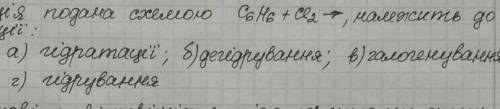 ня подана схемою C6H6 + Cl2 →, належить до
ції:
а) гідратації; б) дегідрування; в) галогенування
г) гідрування